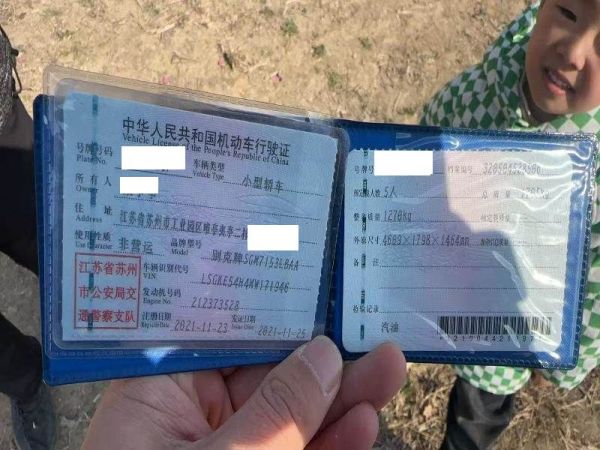 中华人民共和国机动车行驶证
Vehicle License of the People's Republic of China
号牌号码
Plate No.
车辆类型
Vehicle Type
小型轿车
所有人
Owner
住址
Address
江苏省苏州市工业园区唯亭
使用性质
Use Character
非营运
品牌型号
Model
别克牌SGM7153LBAA
车辆识别代号
VIN
LSGKE54H4MW171946
发动机号码
Engine No.
212373528
注册日期
Register Date
2021-11-23
发证日期
Issue Date
2021-11-25
江苏省苏州
市公安局交
通警察支队
号牌
档案编号
核定载人数
5人
总质量
整备质量
1270kg
核定载质量
外廓尺寸
4669×1798×1464mm
备注
检验记录
汽油